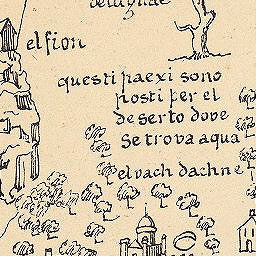 el fion
questi paexi sono
posti per el
deserto dove
Se trova aqua
el vach dachne